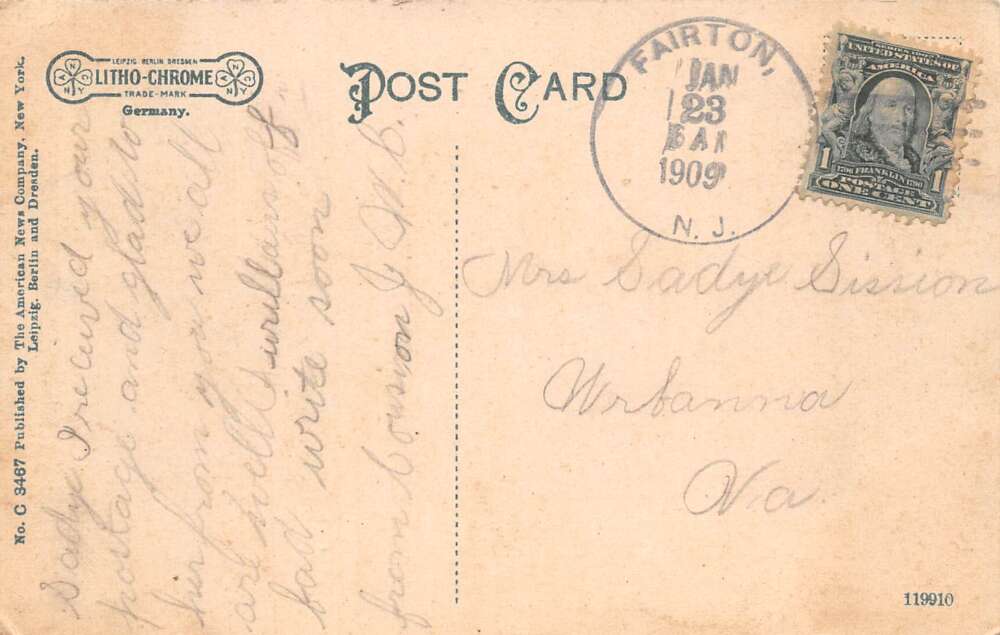 No. C 3467 Published by The American News Company, New York.
Leipzig. Berlin and Dresden.
LEIPZIG BERLIN DRESDEN
LITHO-CHROME
TRADE-MARK
Germany.
POST CARD
FAIRTON,
JAN
23
6 AM
1909
N. J.
SERIES 1902
UNITED STATES OF
AMERICA
1706 FRANKLIN 1790
POSTAGE
1 ONE CENT 1
Sadye I received your
postage and glad to
hear from you we all
are well
bad write soon
from Cousion J W. B.
Mrs Sadye Sission
Wrbanna
Va
119910